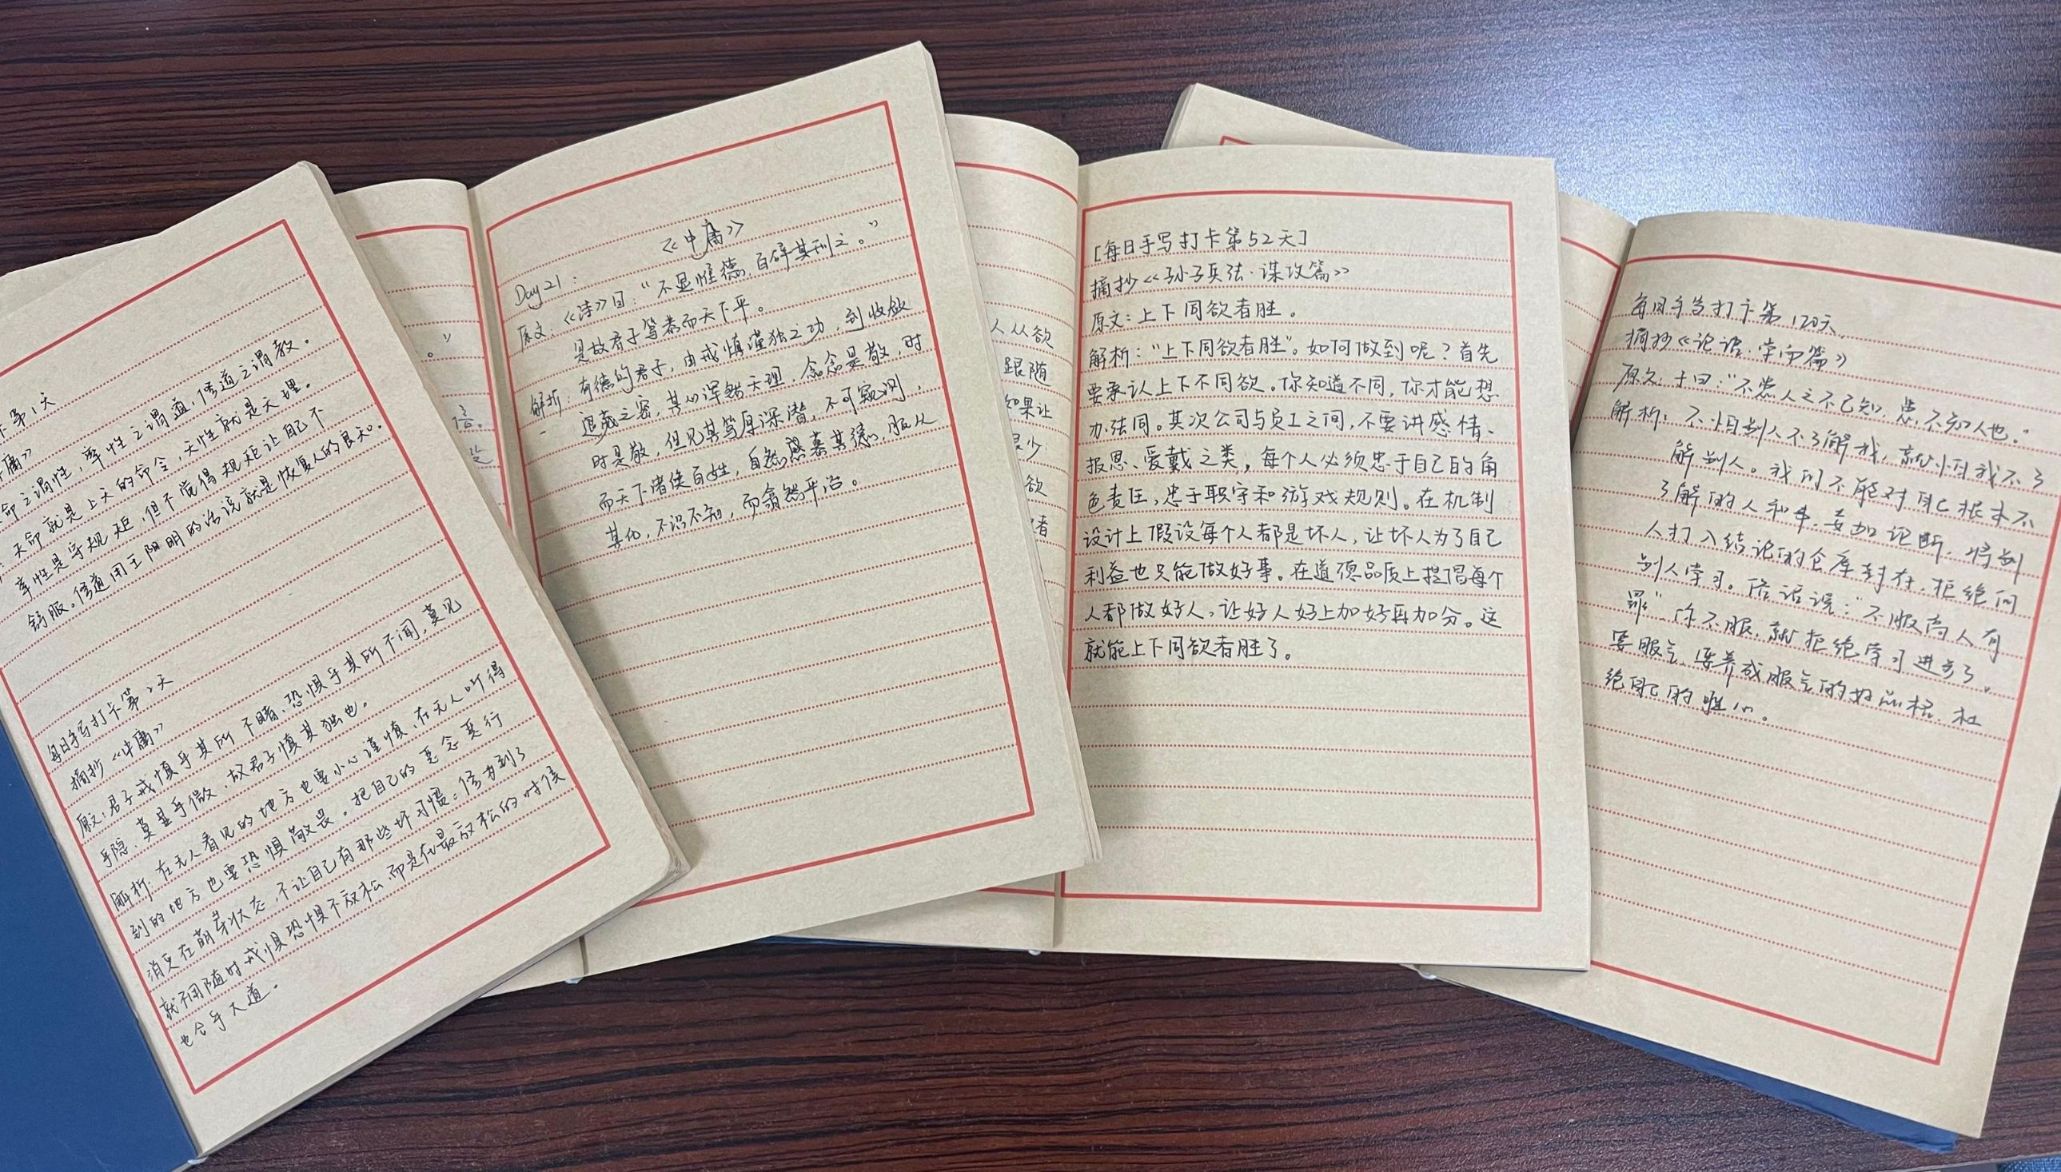 卡第1天
庸》
命之谓性，率性之谓道，修道之谓教。
天命就是上天的命令，天性就是天理。
率性是守规矩，但不觉得规矩让自己不
舒服。修道用王阳明的话说就是恢复人的良知。
每日手写打卡第2天
摘抄《中庸》
原文：君子戒慎乎其所不睹，恐惧乎其所不闻，莫见
乎隐，莫显乎微，故君子慎其独也。
解析：在无人看见的地方也要小心谨慎，在无人听得
到的地方也要恐惧敬畏。把自己的恶念恶行
消灭在萌芽状态，不让自己有那些坏习惯。修为到了
就不用随时戒惧恐惧不放松而是在最放松的时候
也合乎大道。
。”
倍。
《中庸》
Day21：
原文：《诗》曰：“不显惟德，百辟其刑之。”
是故君子笃恭而天下平。
解析：有德的君子，由戒慎谨独之功，到收敛
退藏之密，其心浑然天理，念念是敬，时
时是敬，但见其笃厚深潜，不可窥测，
而天下诸侯百姓，自然感慕其德，服从
其化，不识不知，而翕然平治。
人从欲
跟随
如果让
很少
欲
者
[每日手写打卡第52天]
摘抄《孙子兵法·谋攻篇》
原文：上下同欲者胜。
解析：“上下同欲者胜”。如何做到呢？首先
要承认上下不同欲。你知道不同，你才能想
办法同。其次公司与员工之间，不要讲感情、
报恩、爱戴之类，每个人必须忠于自己的角
色责任，忠于职守和游戏规则。在机制
设计上假设每个人都是坏人，让坏人为了自己
利益也只能做好事。在道德品质上提倡每个
人都做好人，让好人好上加好再加分。这
就能上下同欲者胜了。
每日手写打卡第120天
摘抄《论语·学而篇》
原文：子曰：“不患人之不己知，患不知人也。”
解析：不怕别人不了解我，就怕我不了
解别人。我们不能对自己根本不
了解的人和事，妄加论断，将别
人打入结论的仓库封存，拒绝向
别人学习。俗话说：“不服高人有
罪”你不服，就拒绝学习进步了。
要服气，培养成服气的好品格，杜
绝自己的胜心。